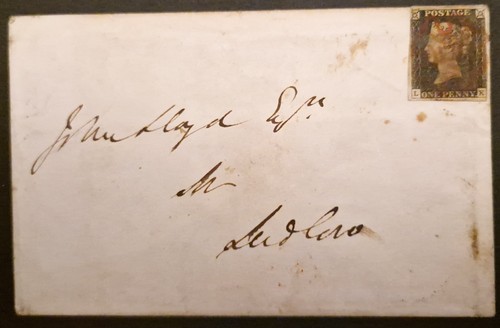 POSTAGE
ONE PENNY
John Lloyd Esqr
Ludlow